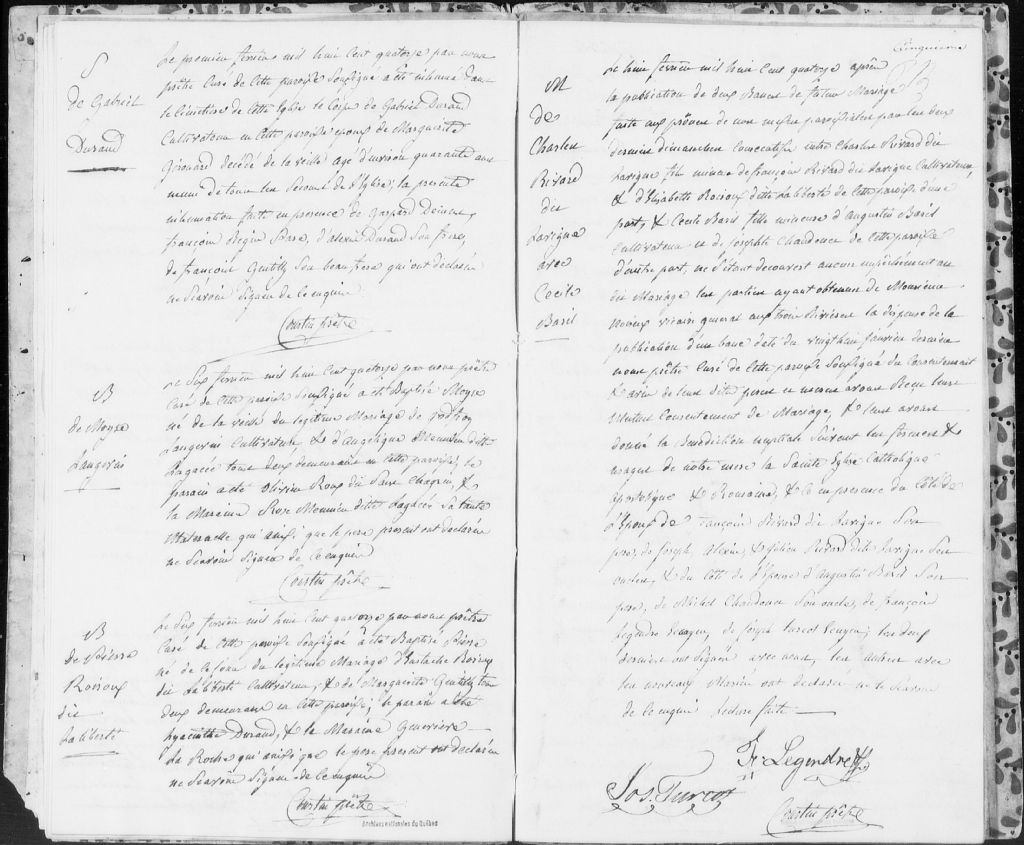 S
De Gabriel
Durand
Le premier fevrier mil huit Cent quatorze par nous
prêtre Curé de Cette paroisse Soussigné a été inhumé dans
le Cimetiere de Cette Eglise le Corps de Gabriel Durand
Cultivateur en Cette paroisse epoux de Marguerite
decédé de la veille agé d'environ quarante ans
muni de tous les Secours de l'Eglise: la presente
inhumation faite en presence de Gaspard
françois d'alexis Durand Son frere,
de françois Gentilly Son beau frere qui ont déclarés
ne Scavoir Signer de Ce enquis
Courtin prêtre
B
De Moyse
Langevin
Le Six fevrier mil huit Cent quatorze par nous prêtre
Curé de Cette paroisse Soussigné a été Baptisé Moyse
né de la veille du legitime Mariage de
Langevin Cultivateur, & d'Angelique Meunier ditte
Lagacée tous deux demeurants en Cette paroisse, le
parain a été Olivier &
la Maraine Rose Meunier ditte Lagacée Sa tante
Maternelle qui ainsi que le pere present ont declarés
ne Scavoir Signer de Ce enquis
Courtin prêtre
B
De Pierre
Roiroux
dit
Laliberté
Le Six fevrier mil huit Cent quatorze par nous prêtre
Curé de Cette paroisse Soussigné a été Baptisé Pierre
né de Ce jour du legitime Mariage d'Eustache
dit Laliberté Cultivateur, & de Marguerite Gentilly tous
deux demeurans en Cette paroisse; le parain a été
hyacinthe Durand, & la Maraine Genevieve
La Roche qui ainsi que le pere present ont declarés
ne Scavoir Signer de Ce enquis
Courtin prêtre
Archives nationales du Québec
Cinquieme
M
De
Charles
Rivard
dit
Lavigne
avec
Cecile
Baril
Le huit fevrier mil huit Cent quatorze après
la publication de deux Bancs de futur Mariage
faite aux prônes de nos messes paroissiales par les deux
derniers dimanches Consecutifs entre Charles Rivard dit
Lavigne fils mineur de françois Rivard dit Lavigne Cultivateur,
& d'Elizabeth ditte Laliberté de Cette paroisse d'une
part, & Cecile Baril fille mineure d'Augustin Baril
Cultivateur et de Josephte Chandonné de Cette paroisse
d'autre part, ne S'etant decouvert aucun empêchement au
dit Mariage les parties ayant obtenues de Monsieur
Noiseux vicaire general aux trois Rivieres la dispense de la
publication d'un banc daté du vingt huit janvier dernier
nous prêtre Curé de Cette paroisse Soussigné du Consentement
& avis de leurs dits peres et meres avons Recu leur
Mutuel Consentement de Mariage, & leur avons
donné la Benediction nuptiale Suivant les formes &
usages de notre mere la Sainte Eglise Catholique
Apostolique & Romaine, & Ce en presence du Côté de
L'Epoux de françois Rivard dit Lavigne Son
pere, de Joseph, Alexis, & Rivard dits Lavigne Ses
oncles, & du Côté de l'Epouse d'Augustin Baril Son
pere, de Michel Chandonné Son oncle, de françois
Legendre Ecuyer, de Joseph Turcot Ecuyer; les deux
derniers ont Signés avec nous, les autres avec
les nouveaux Mariés ont declarés ne le Scavoir
de Ce enquis lecture faite
Fr Legendre
Jos. Turcot
Courtin prêtre